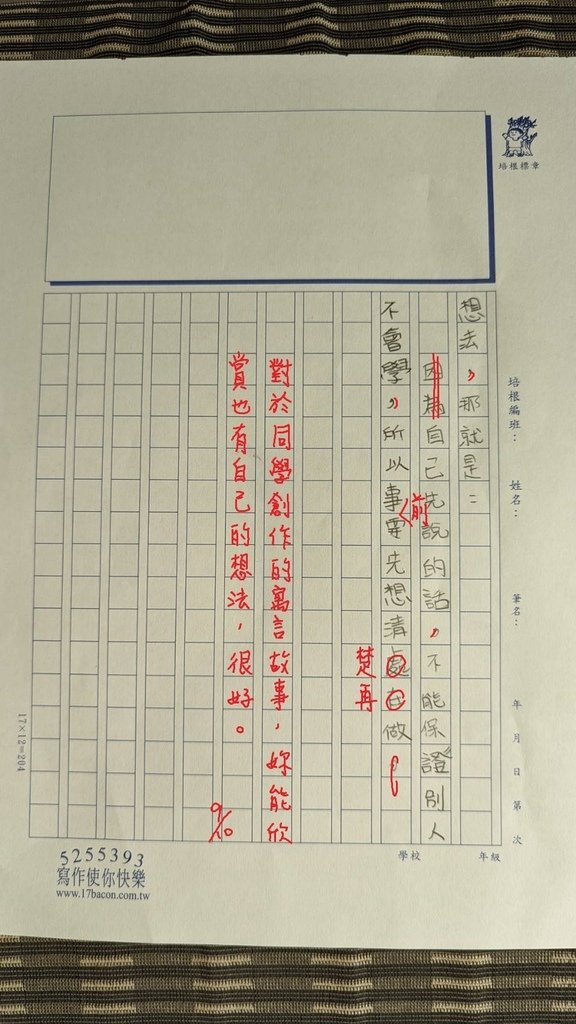 培根標章
培根編班：
姓名：
筆名：
年 月 日 第 次
想法，那就是：
因為自己先說的話，不能保證別人
不會學，所以事要先想清處在做
前
楚再
對於同學創作的寓言故事，妳能欣
賞也有自己的想法，很好。
9/10
17×12=204
學校
年級
5255393
寫作使你快樂
www.17bacon.com.tw